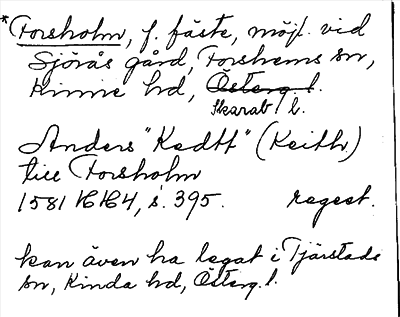 *Forsholm, f. fäste, möjl. vid
Sjörås gård, Forshems sn,
Kinne hd, Österg. l.
Skarab. l.
Anders "Kedtt" (Keith)
till Forsholm
1581 HH4, s. 395. regest.
kan även ha legat i Tjärstads
sn, Kinda hd, Österg. l.